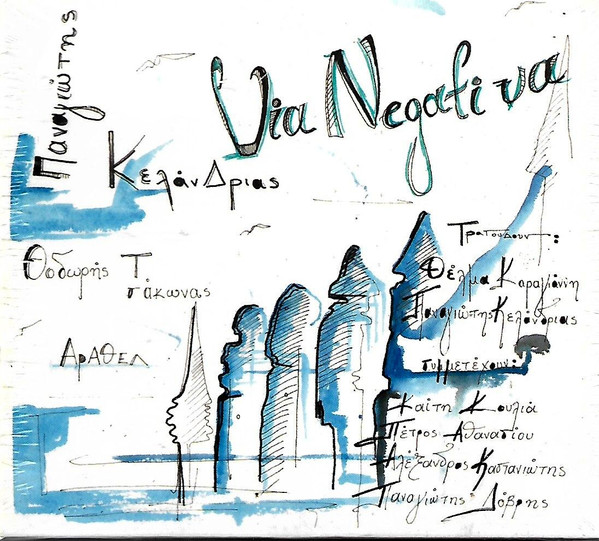 Παναγιώτης
Via Negativa
ΚελάνΔριας
Θοδωρής Τ.
τσάκωνας
ΑρΑΘΕΛ
Τραγουδούν:
Θέλμα Καραγιάννη
Παναγιώτης Κελάνδριας
συμμετέχουν:
Καίτη Κουλιά
Πέτρος Αθανασίου
Αλέξανδρος Καστανιώτης
Παναγιώτης Δόβρης